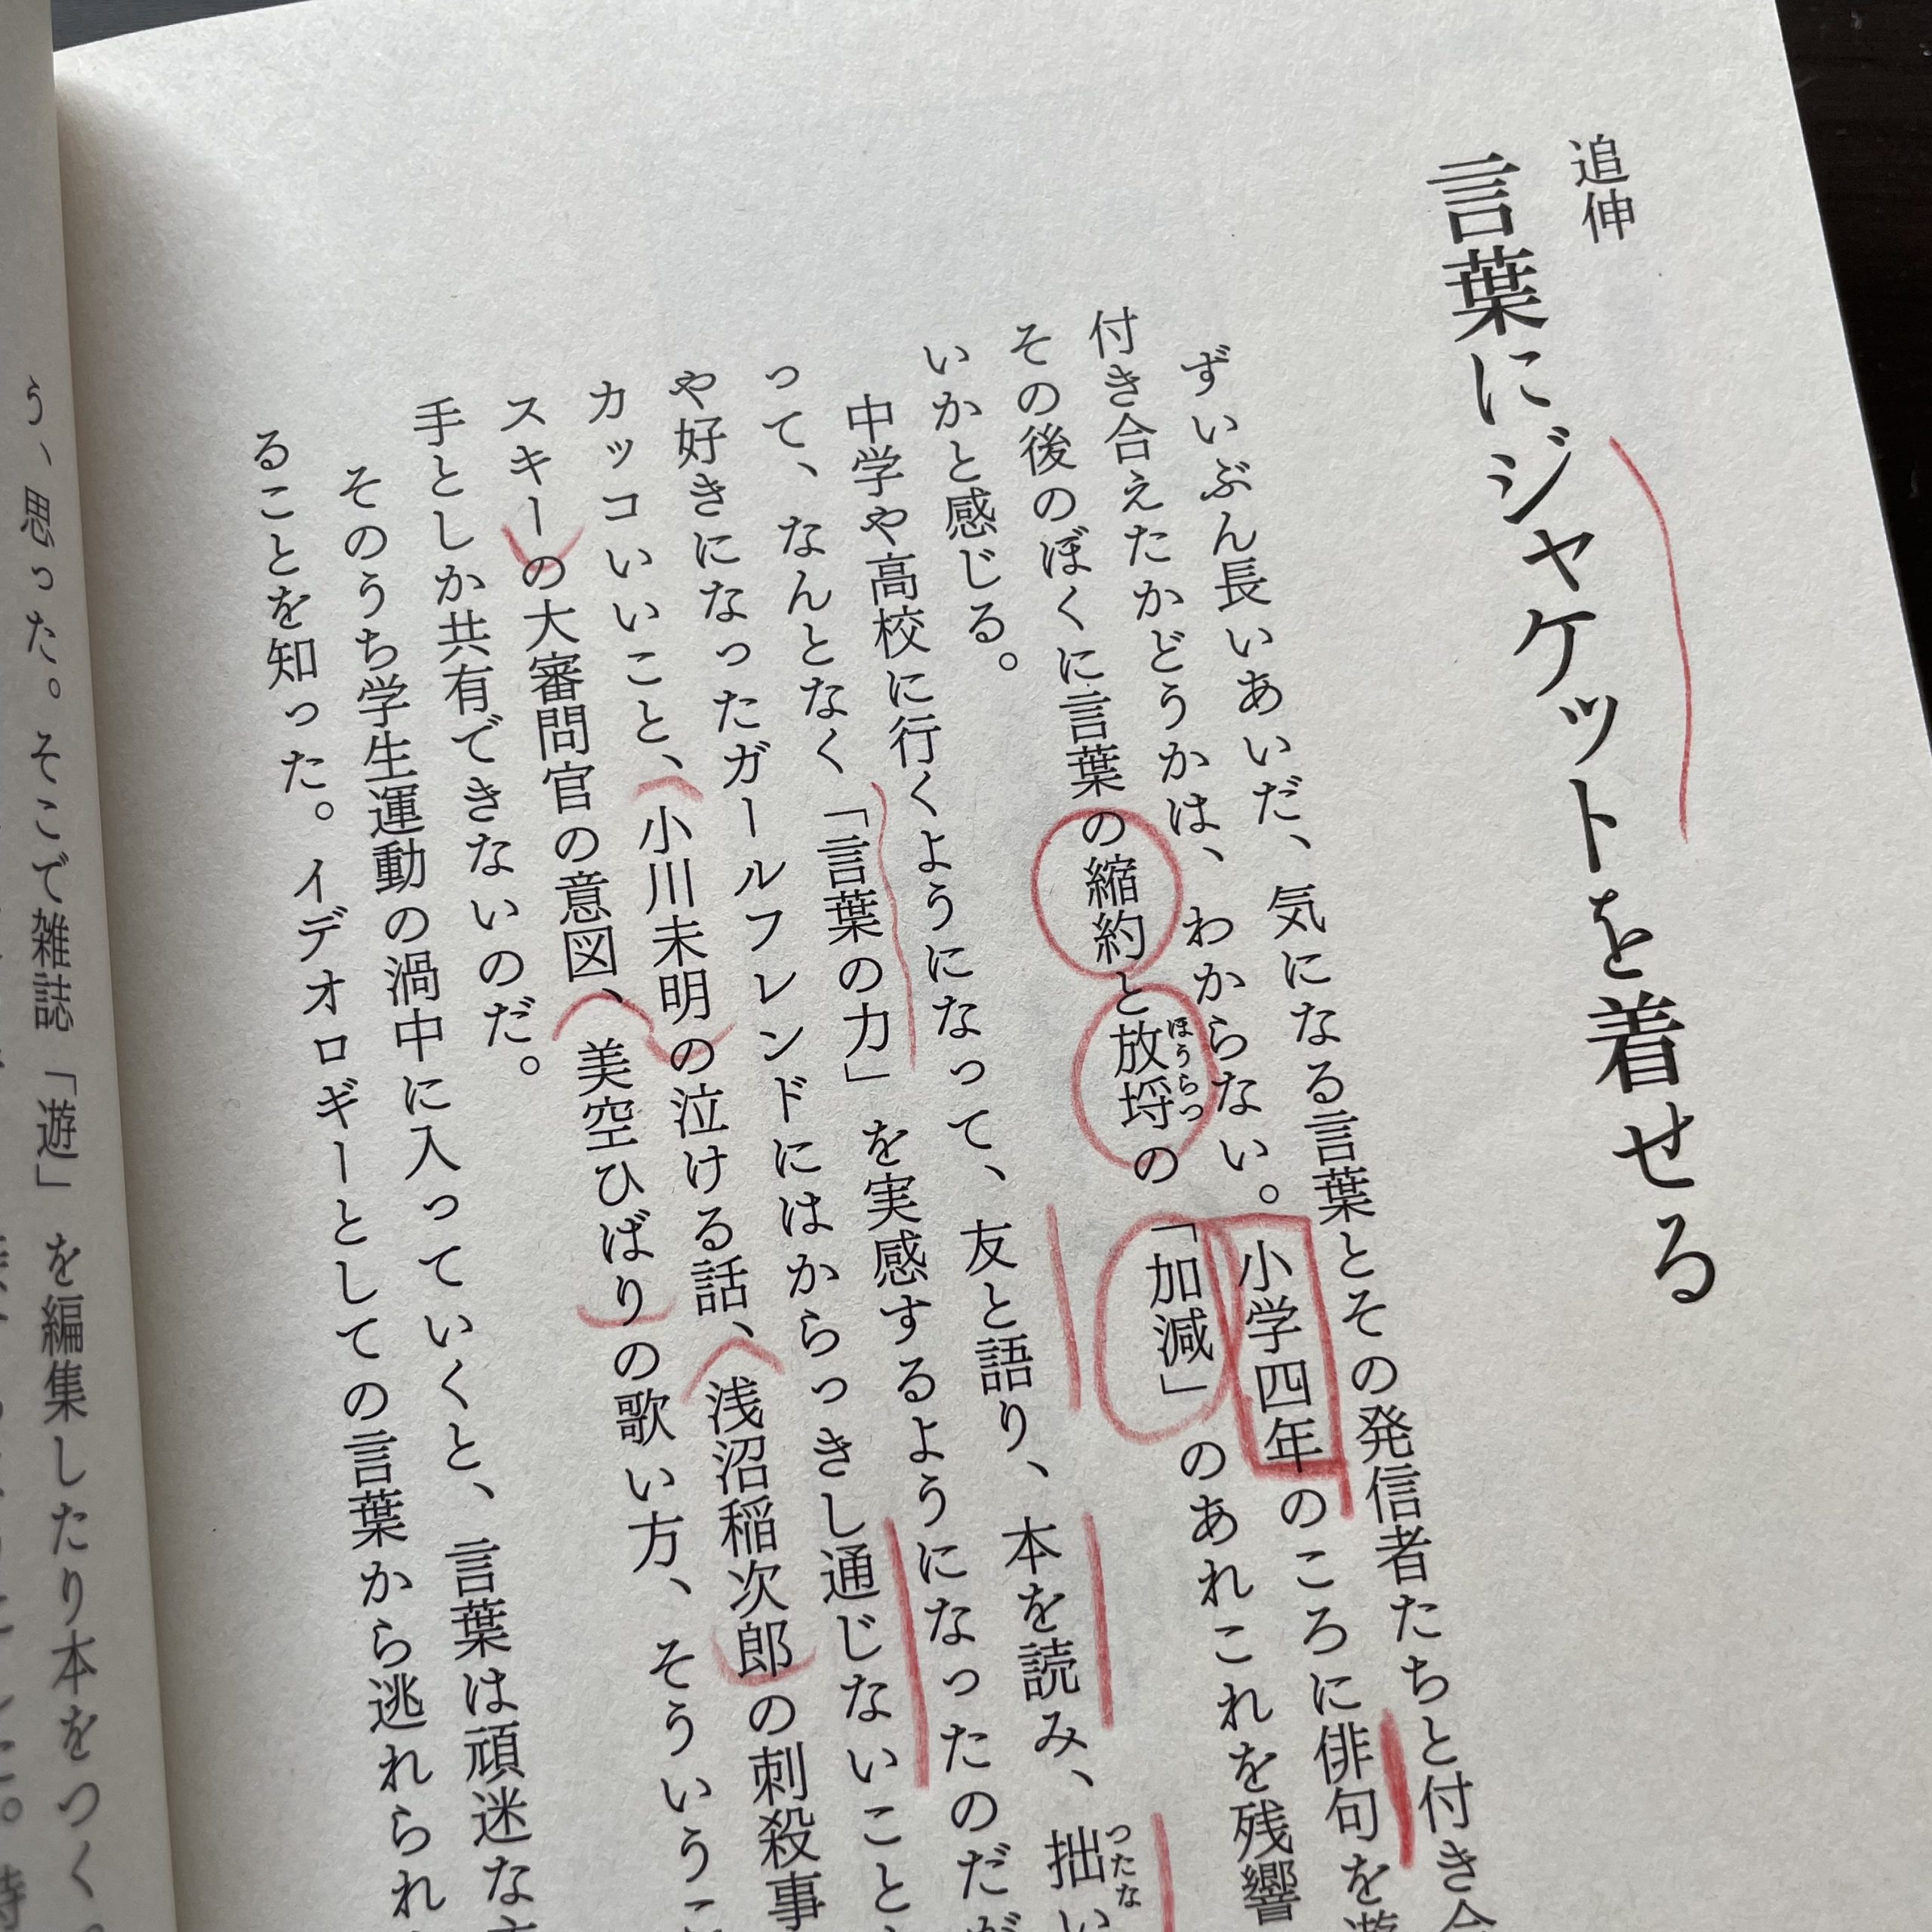 追伸
言葉にジャケットを着せる
ずいぶん長いあいだ、気になる言葉とその発信者たちと付き合
付き合えたかどうかは、わからない。小学四年のころに俳句を遊
その後のぼくに言葉の縮約と放埒の「加減」のあれこれを残響
ほうらつ
いかと感じる。
中学や高校に行くようになって、友と語り、本を読み、拙い
つたな
って、なんとなく「言葉の力」を実感するようになったのだが
や好きになったガールフレンドにはからっきし通じないこと
カッコいいこと、小川未明の泣ける話、浅沼稲次郎の刺殺事
スキーの大審問官の意図、美空ひばりの歌い方、そういうこ
手としか共有できないのだ。
そのうち学生運動の渦中に入っていくと、言葉は頑迷な
ることを知った。イデオロギーとしての言葉から逃れられ
う、思った。そこで雑誌「遊」を編集したり本をつく